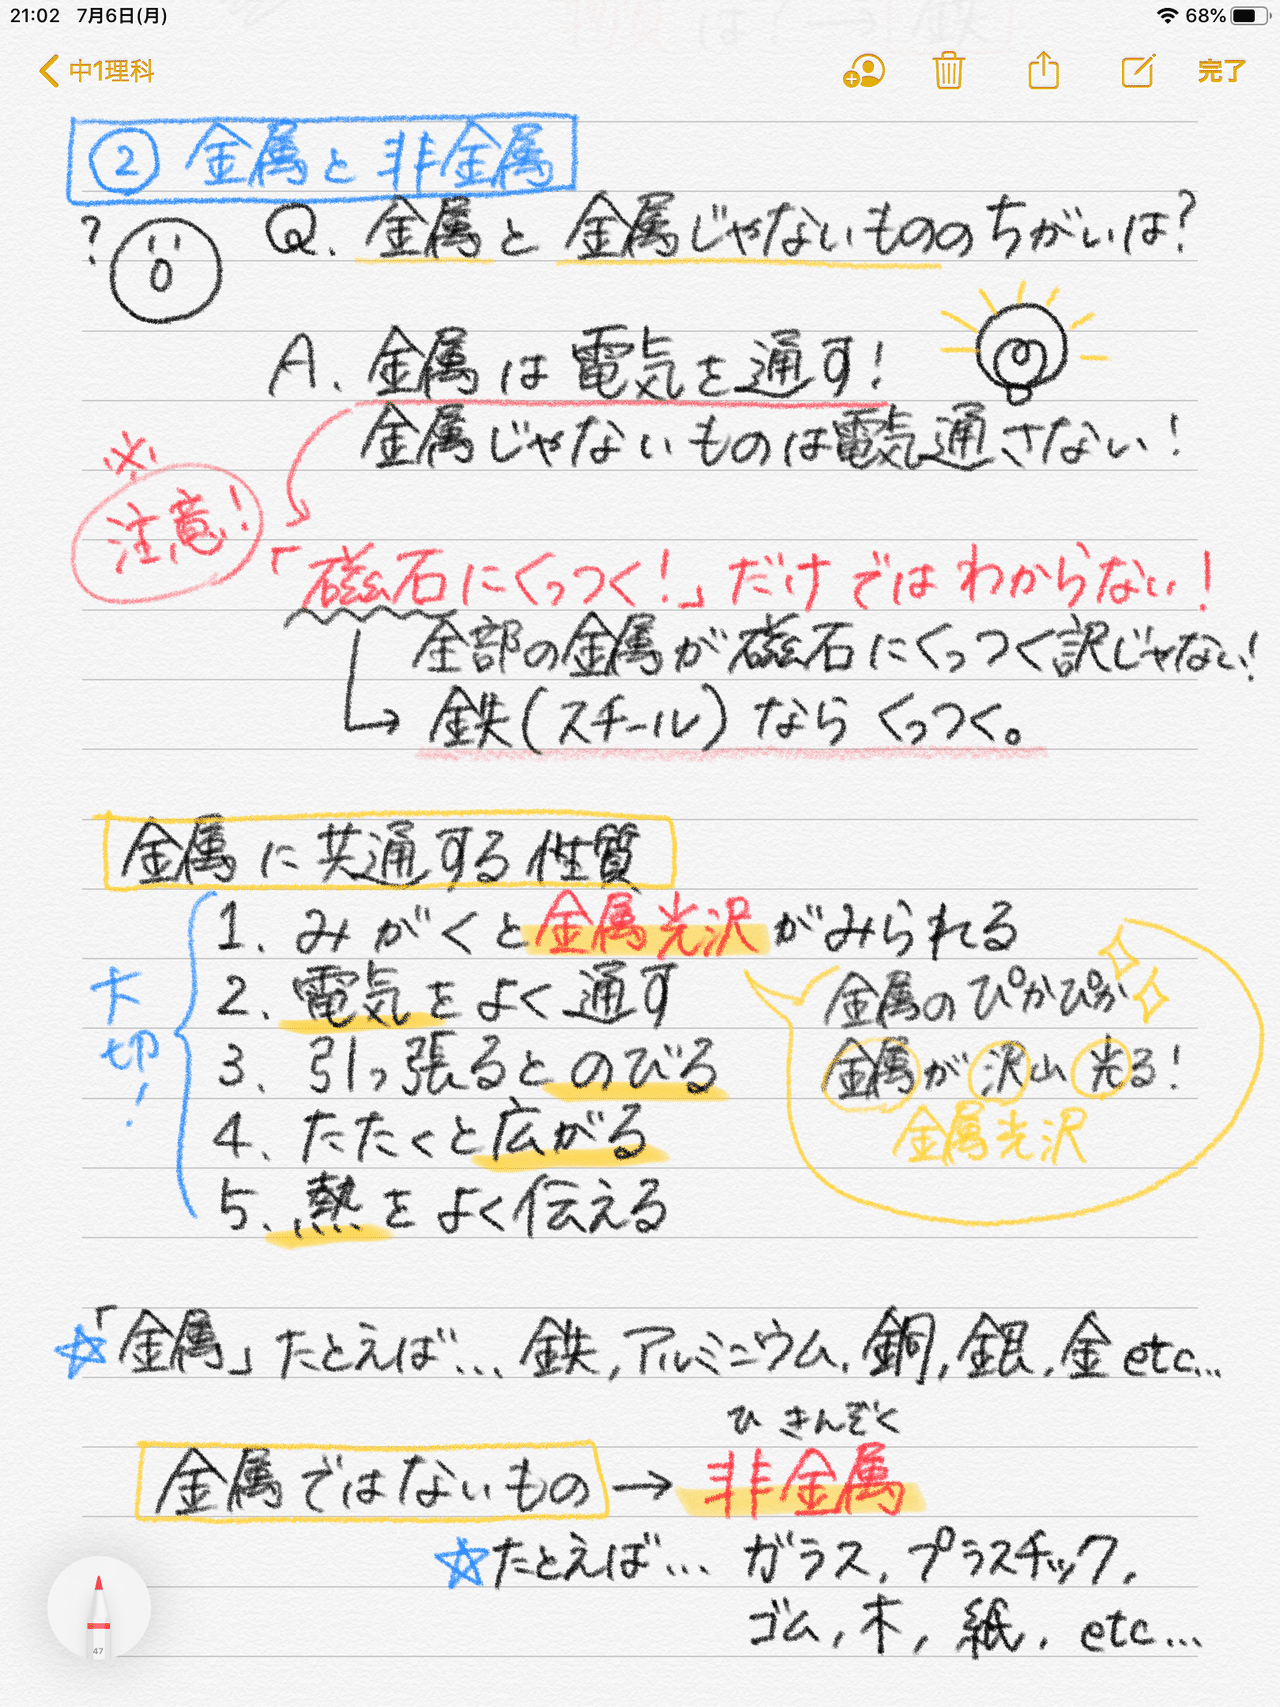 21:02 7月6日(月) 68%
中1理科 完了
② 金属と非金属
? Q. 金属と金属じゃないもののちがいは?
A. 金属は電気を通す!
金属じゃないものは電気通さない!
※
注意!
「磁石にくっつく!」だけではわからない!
全部の金属が磁石にくっつく訳じゃない!
→ 鉄(スチール)ならくっつく。
金属に共通する性質
大切!
1. みがくと金属光沢がみられる
2. 電気をよく通す
3. 引っ張るとのびる
4. たたくと広がる
5. 熱をよく伝える
金属のぴかぴか
金属が沢山光る!
金属光沢
☆「金属」たとえば…鉄,アルミニウム,銅,銀,金 etc...
ひきんぞく
金属ではないもの → 非金属
☆たとえば… ガラス,プラスチック,
ゴム,木,紙, etc...
47